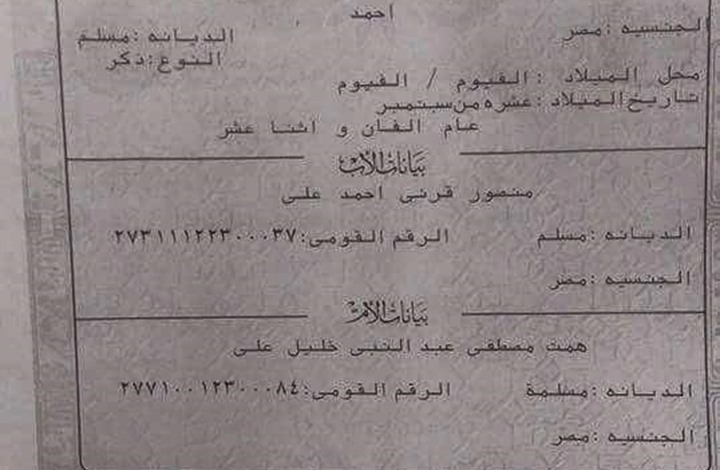 احمد
الجنسيه :مصر الديانه :مسلم
النوع:ذكر
محل الميلاد :الفيوم / الفيوم
تاريخ الميلاد :عشره من سبتمبر
عام الفان و اثنا عشر
بيانات الأب
منصور قرنى احمد على
الديانه :مسلم الرقم القومى:٢٧٣١١١٢٢٣٠٠٠٣٧
الجنسيه :مصر
بيانات الأم
همت مصطفى عبد النبى خليل على
الديانه :مسلمة الرقم القومى:٢٧٧١٠٠١٢٣٠٠٠٨٤
الجنسيه :مصر